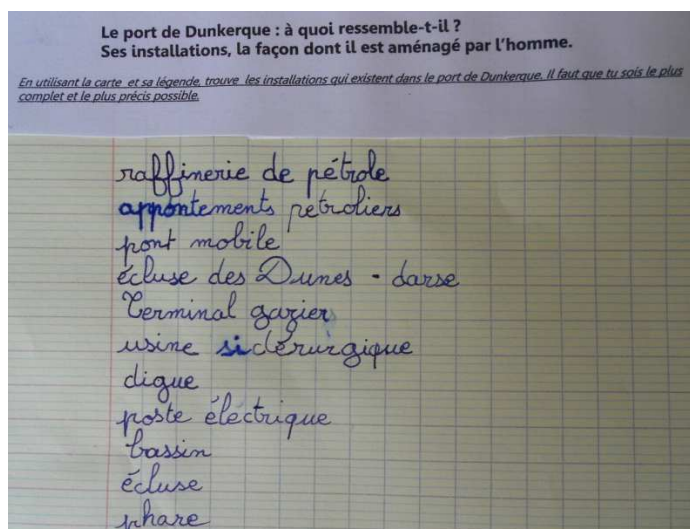 Le port de Dunkerque : à quoi ressemble-t-il ?
Ses installations, la façon dont il est aménagé par l'homme.
En utilisant la carte et sa légende, trouve les installations qui existent dans le port de Dunkerque. Il faut que tu sois le plus
complet et le plus précis possible.
raffinerie de pétrole
appontements petroliers
pont mobile
écluse des Dunes - darse
Terminal gazier
usine sidérurgique
digue
poste électrique
bassin
écluse
phare